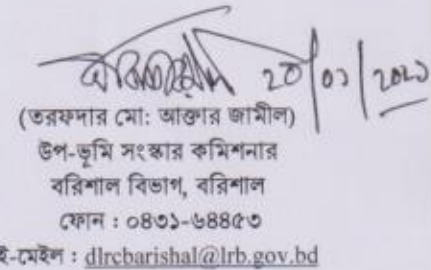 ২০/০১/২০২১
(তরফদার মো: আক্তার জামীল)
উপ-ভূমি সংস্কার কমিশনার
বরিশাল বিভাগ, বরিশাল
ফোন : ০৪৩১-৬৪৪৫৩
ই-মেইল : dlrcbarishal@lrb.gov.bd